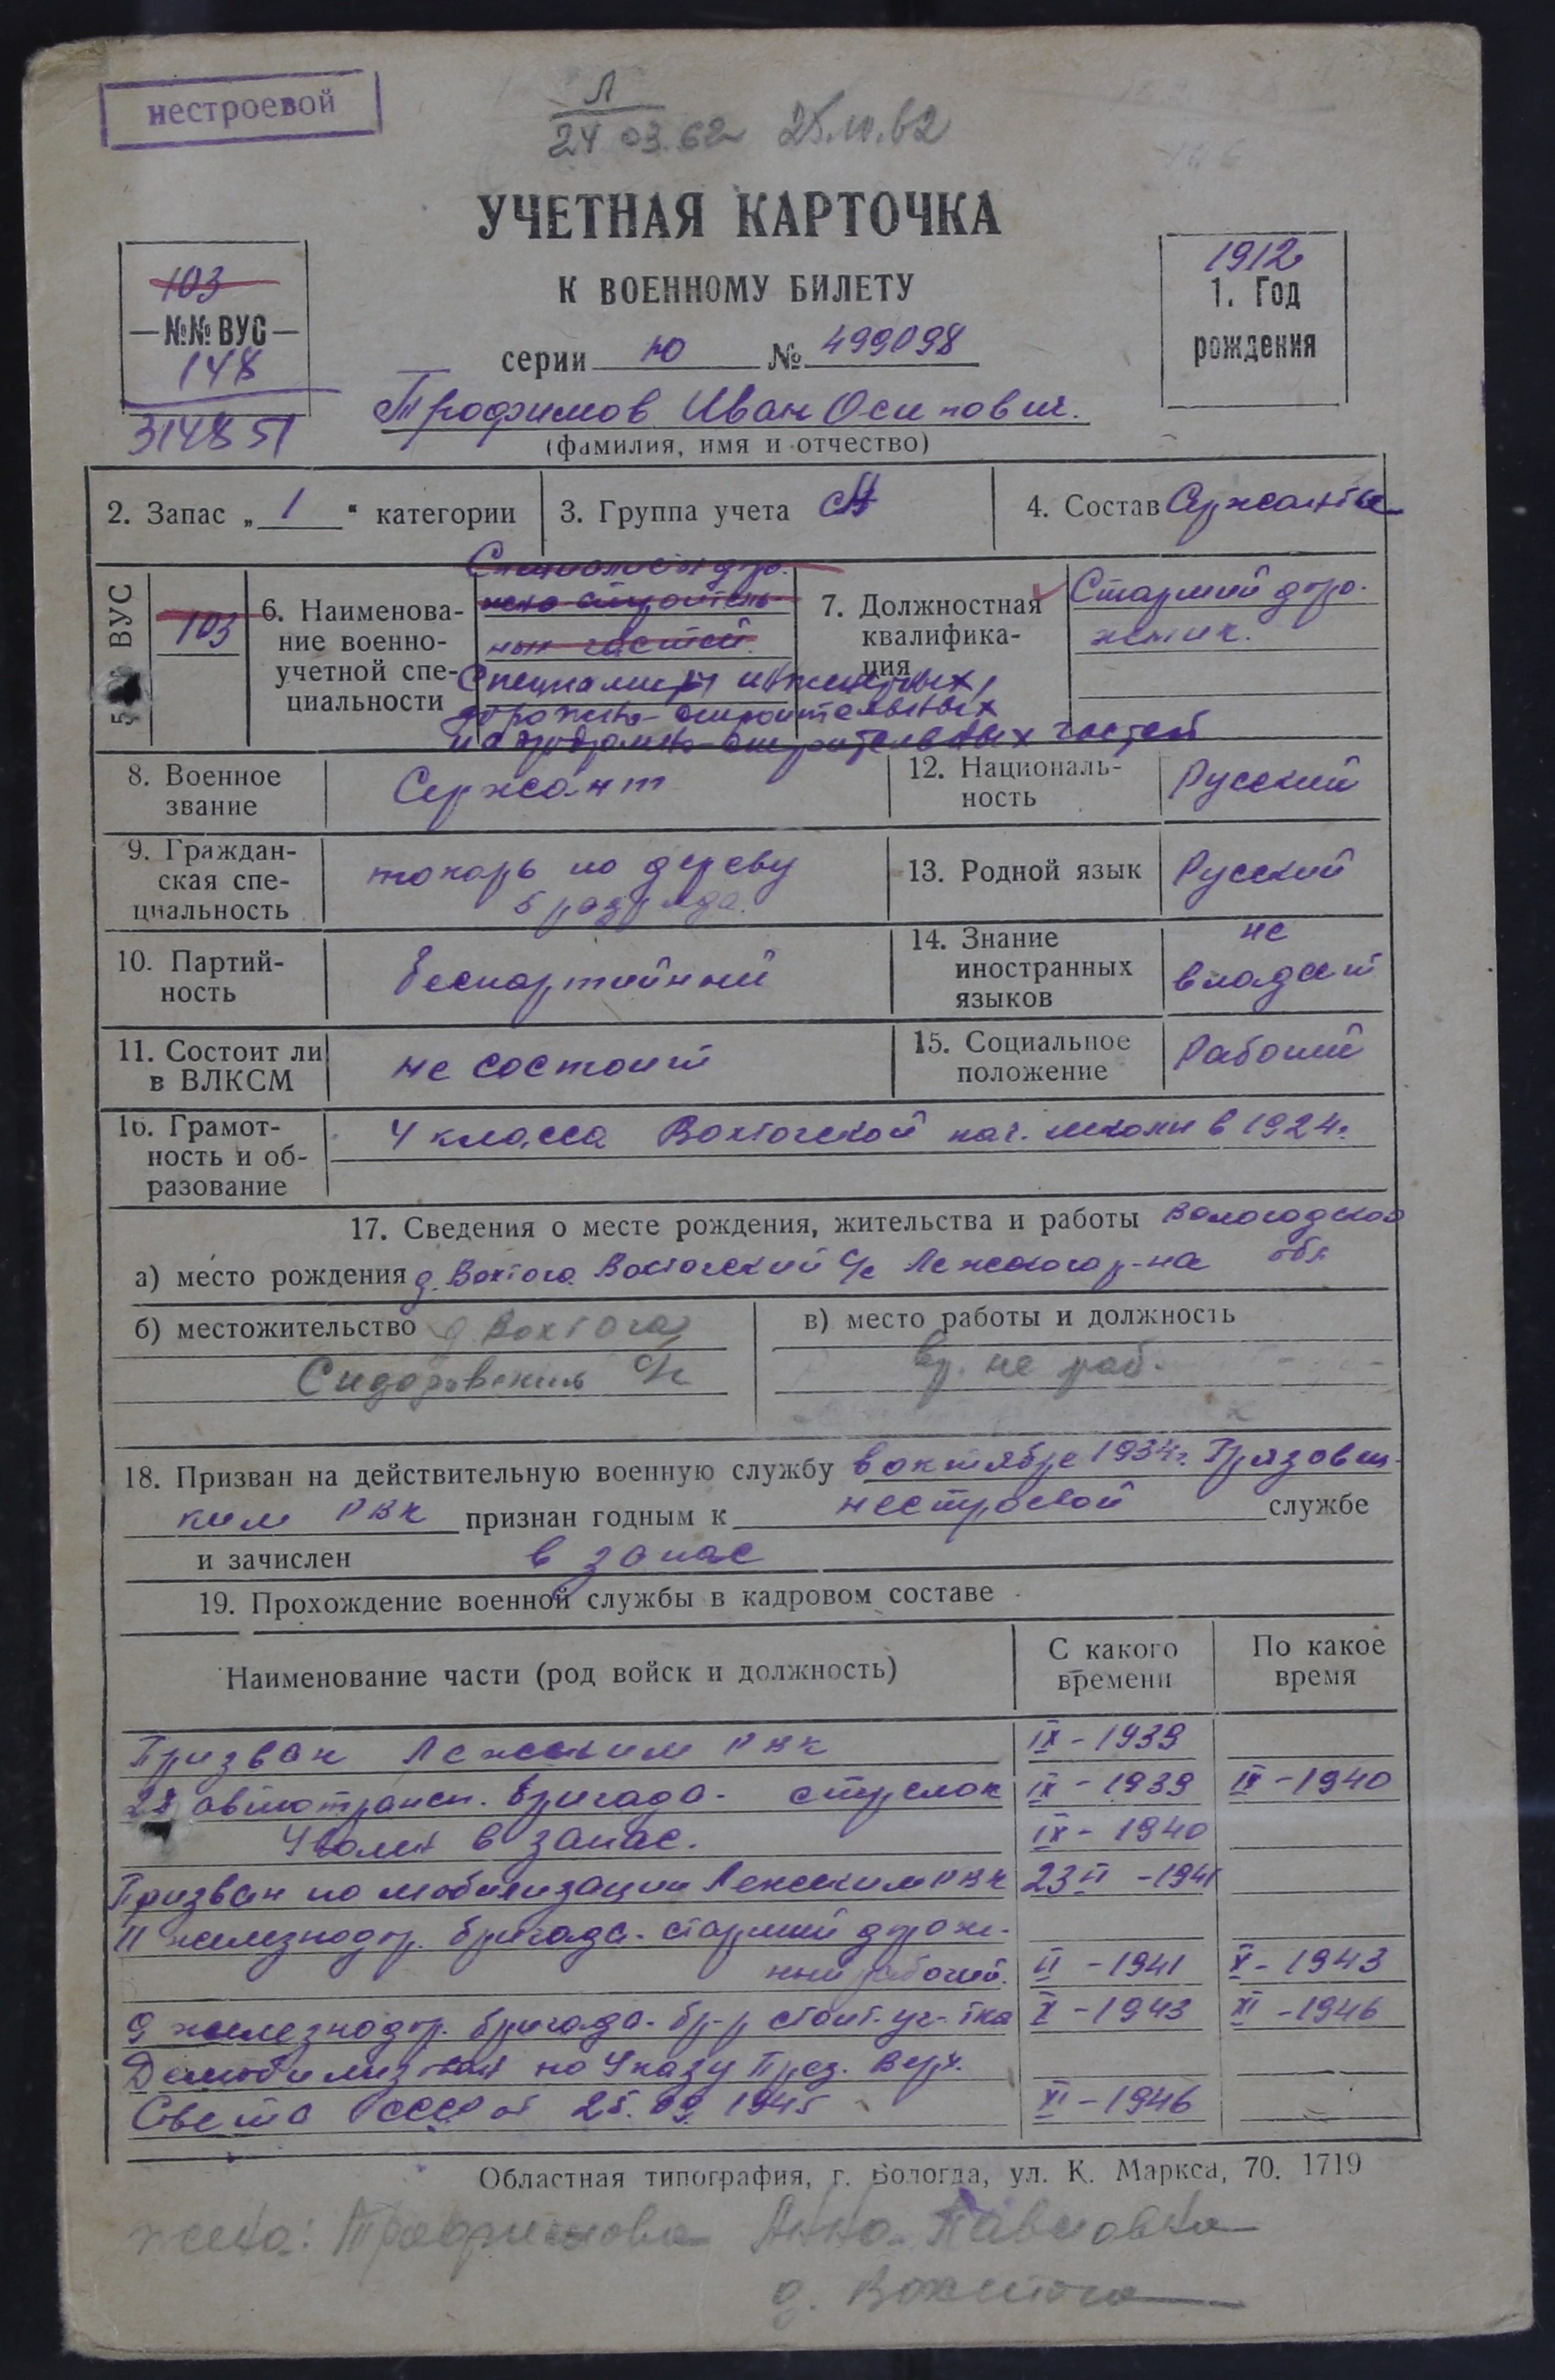 нестроевой
Л
24 03.62 25.10.62
УЧЕТНАЯ КАРТОЧКА
К ВОЕННОМУ БИЛЕТУ
103
№№ ВУС
148
314851
серии Ю № 499098
1912
1. Год
рождения
Трофимов Иван Осипович.
(фамилия, имя и отчество)
2. Запас „ 1 “ категории
3. Группа учета СА
4. Состав Сержанты
5. ВУС
103
6. Наименова-
ние военно-
учетной спе-
циальности
Специалист доро-
жно-строитель-
ных частей.
Специалисты инженерных,
дорожно-строительных
и аэродромно-строительных частей
7. Должностная
квалифика-
ция
Старший доро-
жник.
8. Военное
звание
Сержант
12. Националь-
ность
Русский
9. Граждан-
ская спе-
циальность
токарь по дереву
5 разряда.
13. Родной язык
Русский
10. Партий-
ность
беспартийный
14. Знание
иностранных
языков
не
владеет
11. Состоит ли
в ВЛКСМ
не состоит
15. Социальное
положение
Рабочий
16. Грамот-
ность и об-
разование
4 класса Вохтогской нач. школы в 1924г
17. Сведения о месте рождения, жительства и работы Вологодской
обл
а) место рождения д. Вохтога Вохтогский с/с Лежского р-на
б) местожительство д Вохтога
Сидоровский с/с
в) место работы и должность
вр. не раб.
18. Призван на действительную военную службу в октябре 1934г. Грязовец-
ким РВК признан годным к нестроевой службе
и зачислен в запас
19. Прохождение военной службы в кадровом составе
Наименование части (род войск и должность)
С какого
времени
По какое
время
Призван Лежским РВК IX - 1939
28 автотрансп. бригада - стрелок IX - 1939 IX - 1940
Уволен в запас. IX - 1940
Призван по мобилизации Лежским РВК 23 VI - 1941
11 железнодор. бригада - старший дорож-
ный рабочий. VI - 1941 X - 1943
9 железнодор. бригада - бр-р стоит. уч-тка X - 1943 XI - 1946
Демобилизован по Указу През. Верх.
Совета СССР от 25.09.1945 XI - 1946
Областная типография, г. Вологда, ул. К. Маркса, 70. 1719
жена: Трофимова Анна Павловна
д. Вохтога